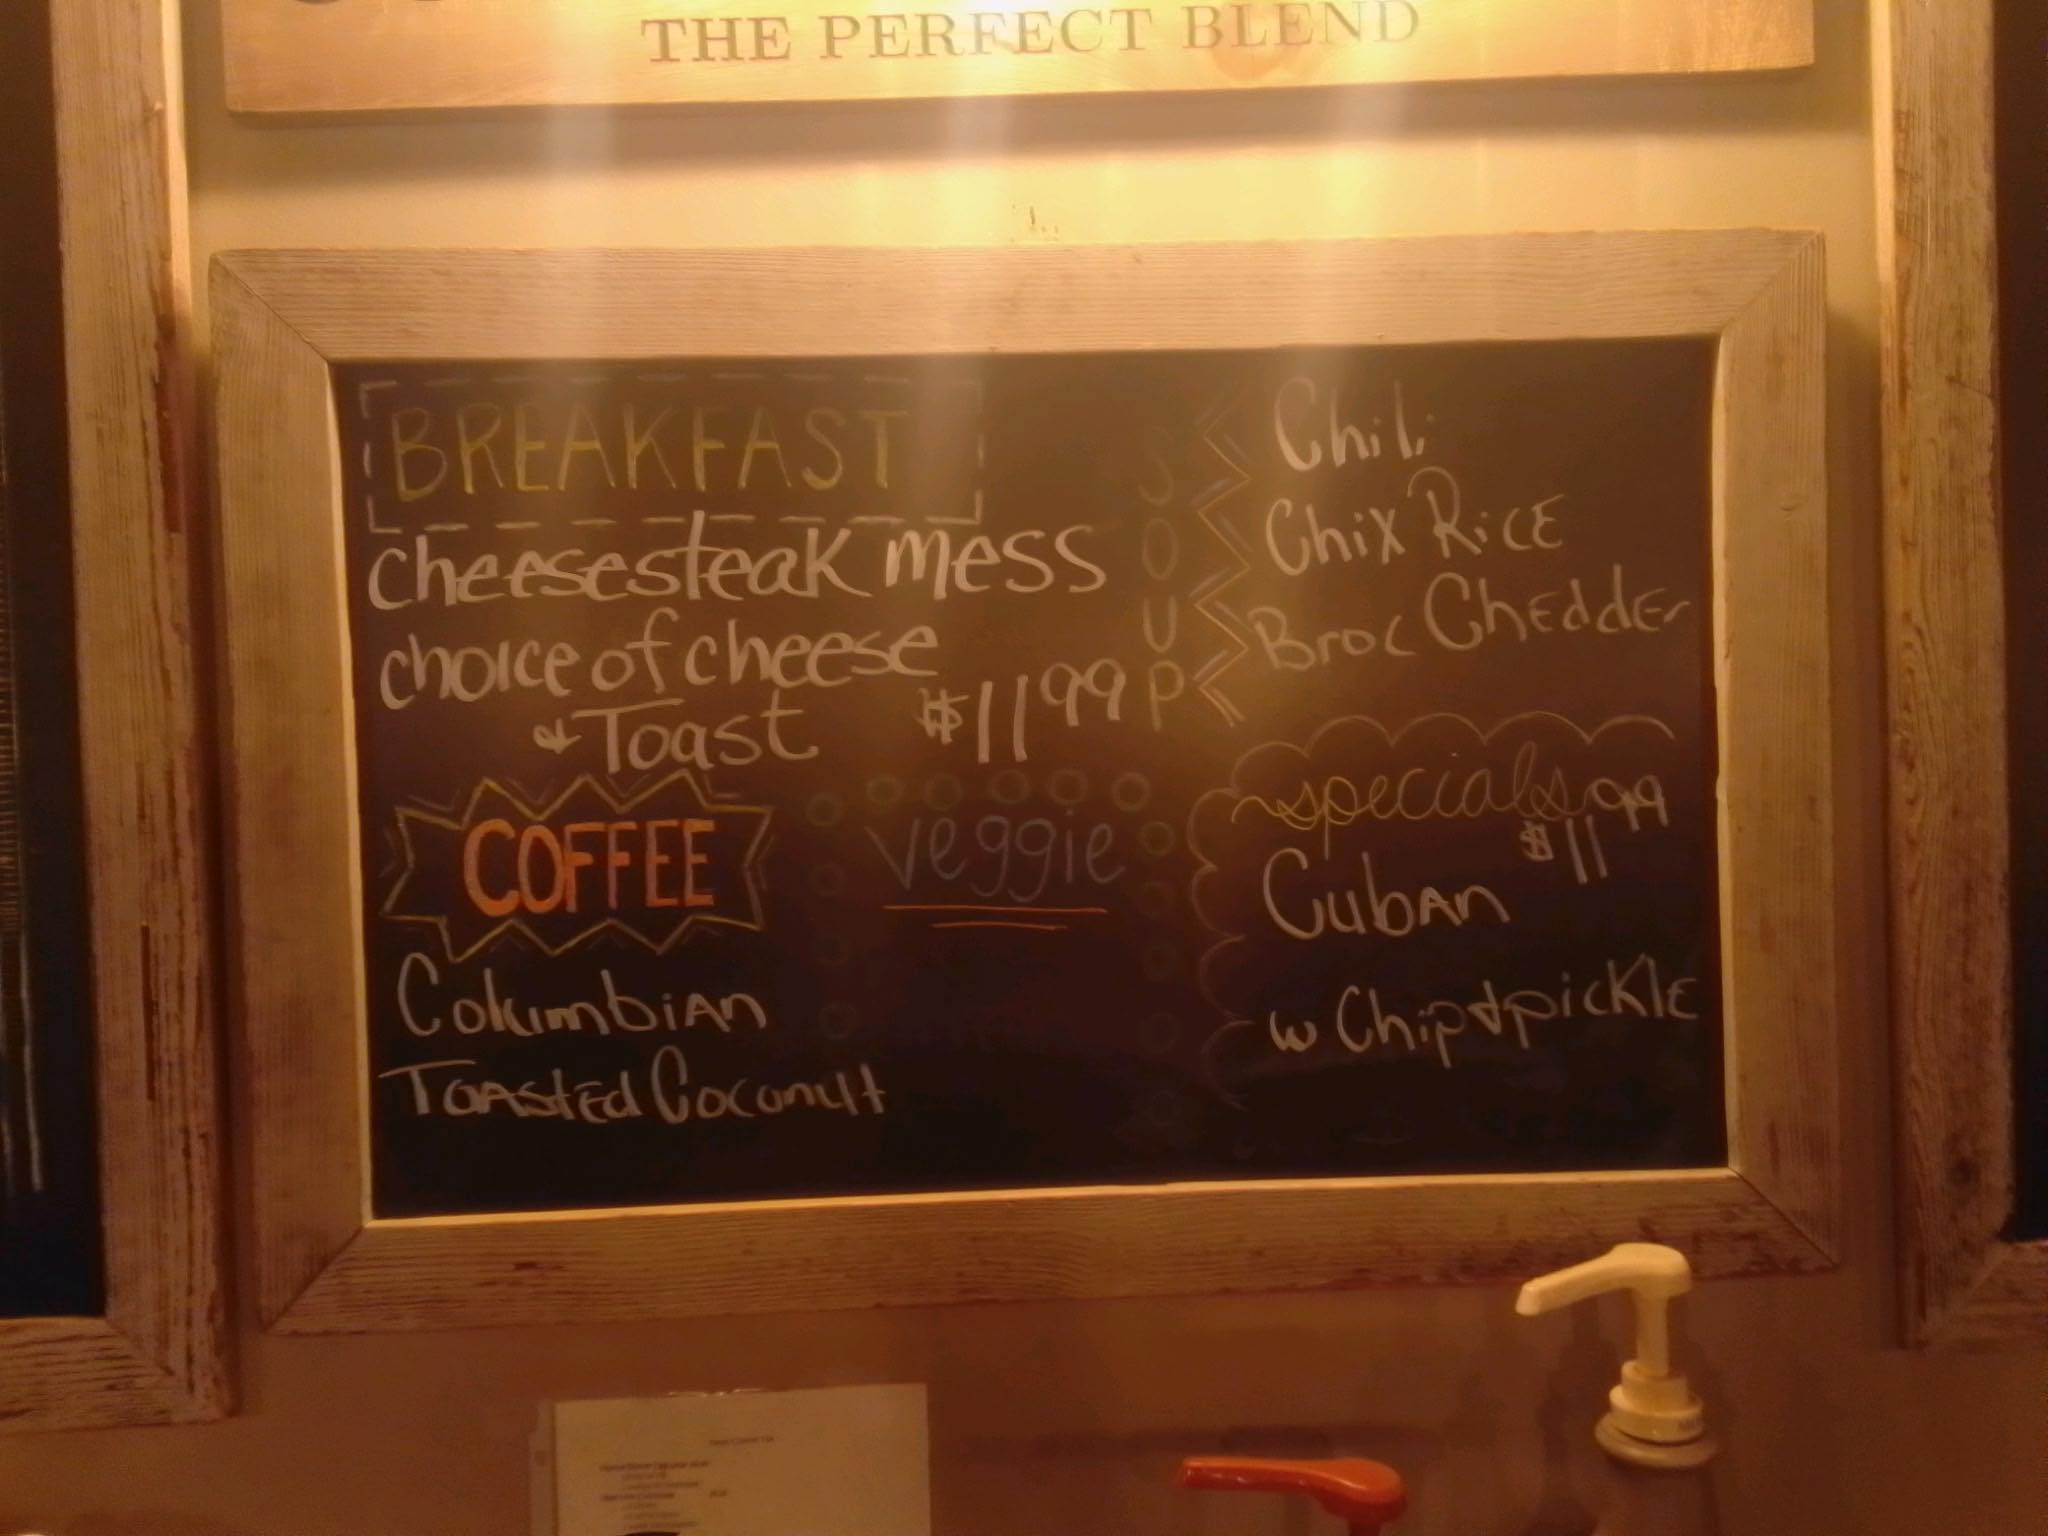 THE PERFECT BLEND
BREAKFAST
cheesesteak mess
choice of cheese
& Toast $11 99
COFFEE
Columbian
Toasted Coconut
veggie
SOUP
Chili
Chix Rice
Broc Chedder
specials
$11 99
Cuban
w Chip & pickle